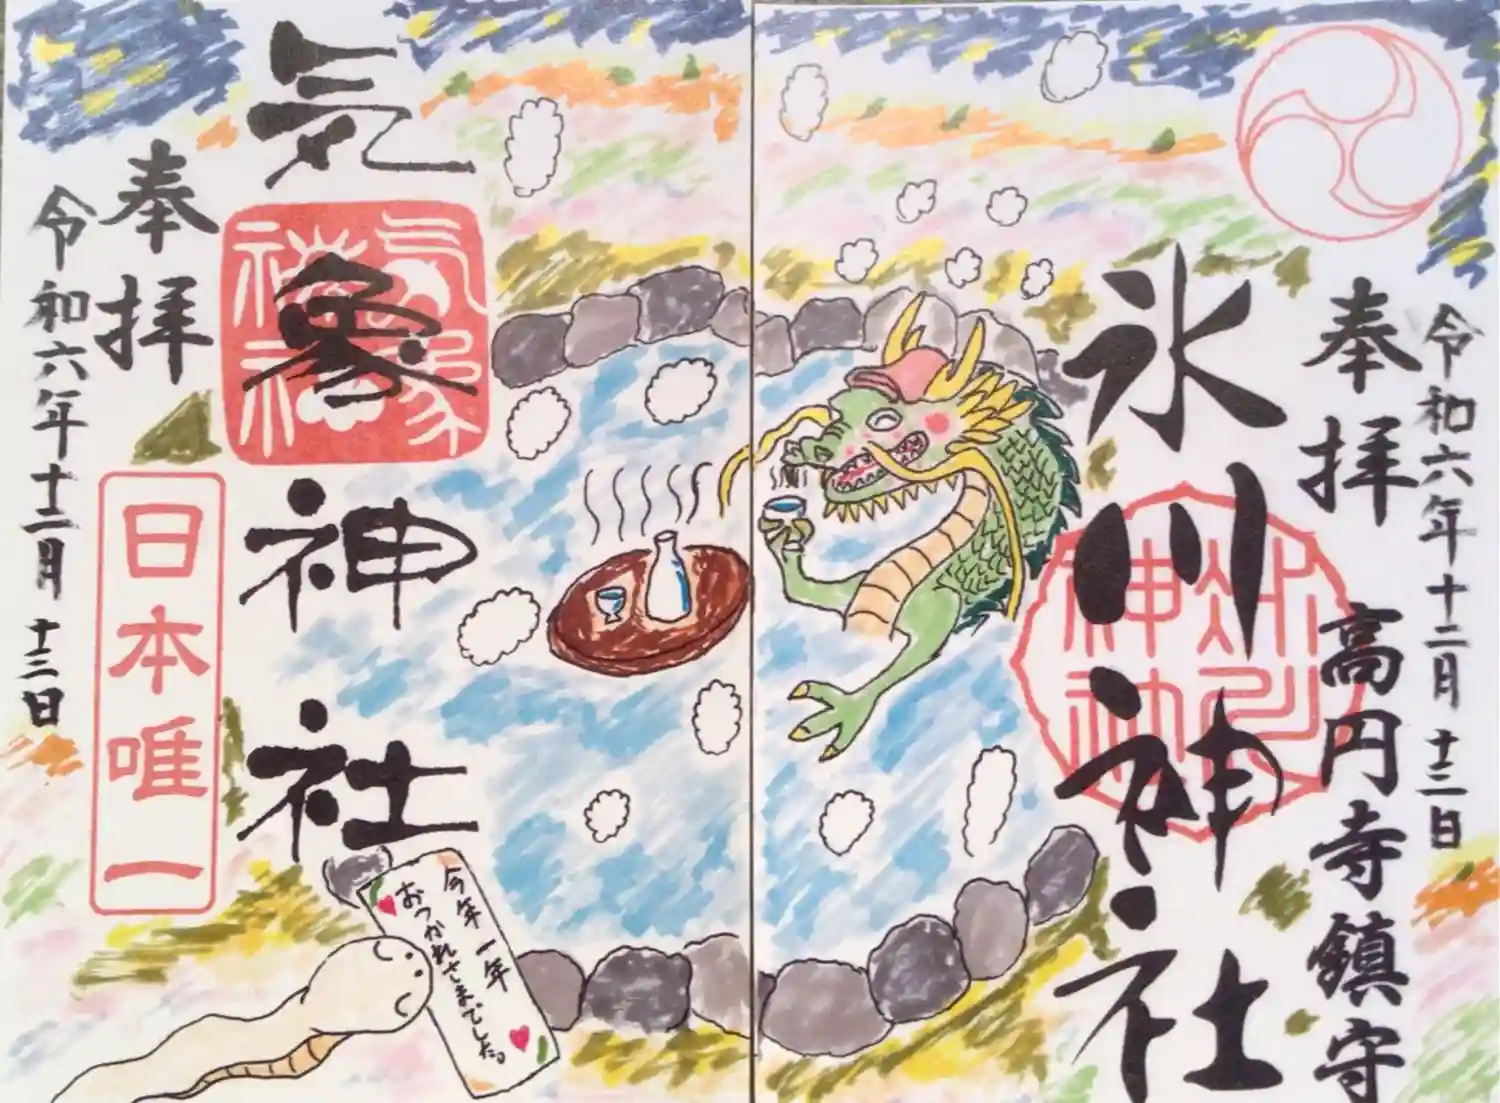 令和六年十二月十三日
奉拝
高円寺鎮守
氷川神社
氷川神社
気象神社
気象神社
奉拝
令和六年十二月十三日
日本唯一
今年一年
おつかれさまでした。